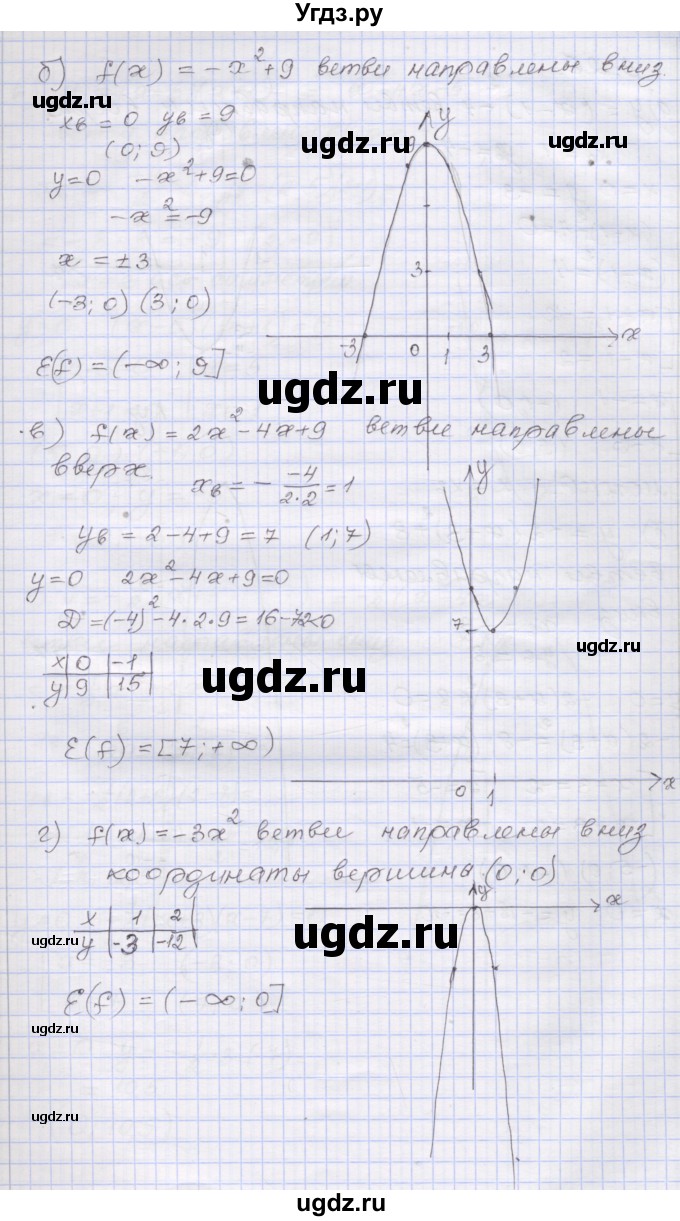 Угдз.ру
б) f(x) = -x²+9 ветви направлены вниз.
ugdz.ru
ugdz.ru
xв = 0 yв = 9
(0; 9)
y=0 -x²+9=0
-x²=-9
x = ±3
(-3; 0) (3; 0)
E(f) = (-∞; 9]
y
9
3
-3 0 1 3 x
ugdz.ru
ugdz.ru
в) f(x) = 2x²-4x+9 ветви направлены
вверх. xв = - -4/2·2 = 1
yв = 2-4+9 = 7 (1; 7)
y=0 2x²-4x+9=0
D = (-4)²-4·2·9 = 16-72<0
x | 0 | -1
y | 9 | 15
E(f) = [7; +∞)
y
7
0 1 x
ugdz.ru
ugdz.ru
г) f(x) = -3x² ветви направлены вниз
координаты вершины (0; 0)
x | 1 | 2
y | -3 | -12
E(f) = (-∞; 0]
y
x
ugdz.ru
ugdz.ru
ugdz.ru
ugdz.ru
ugdz.ru